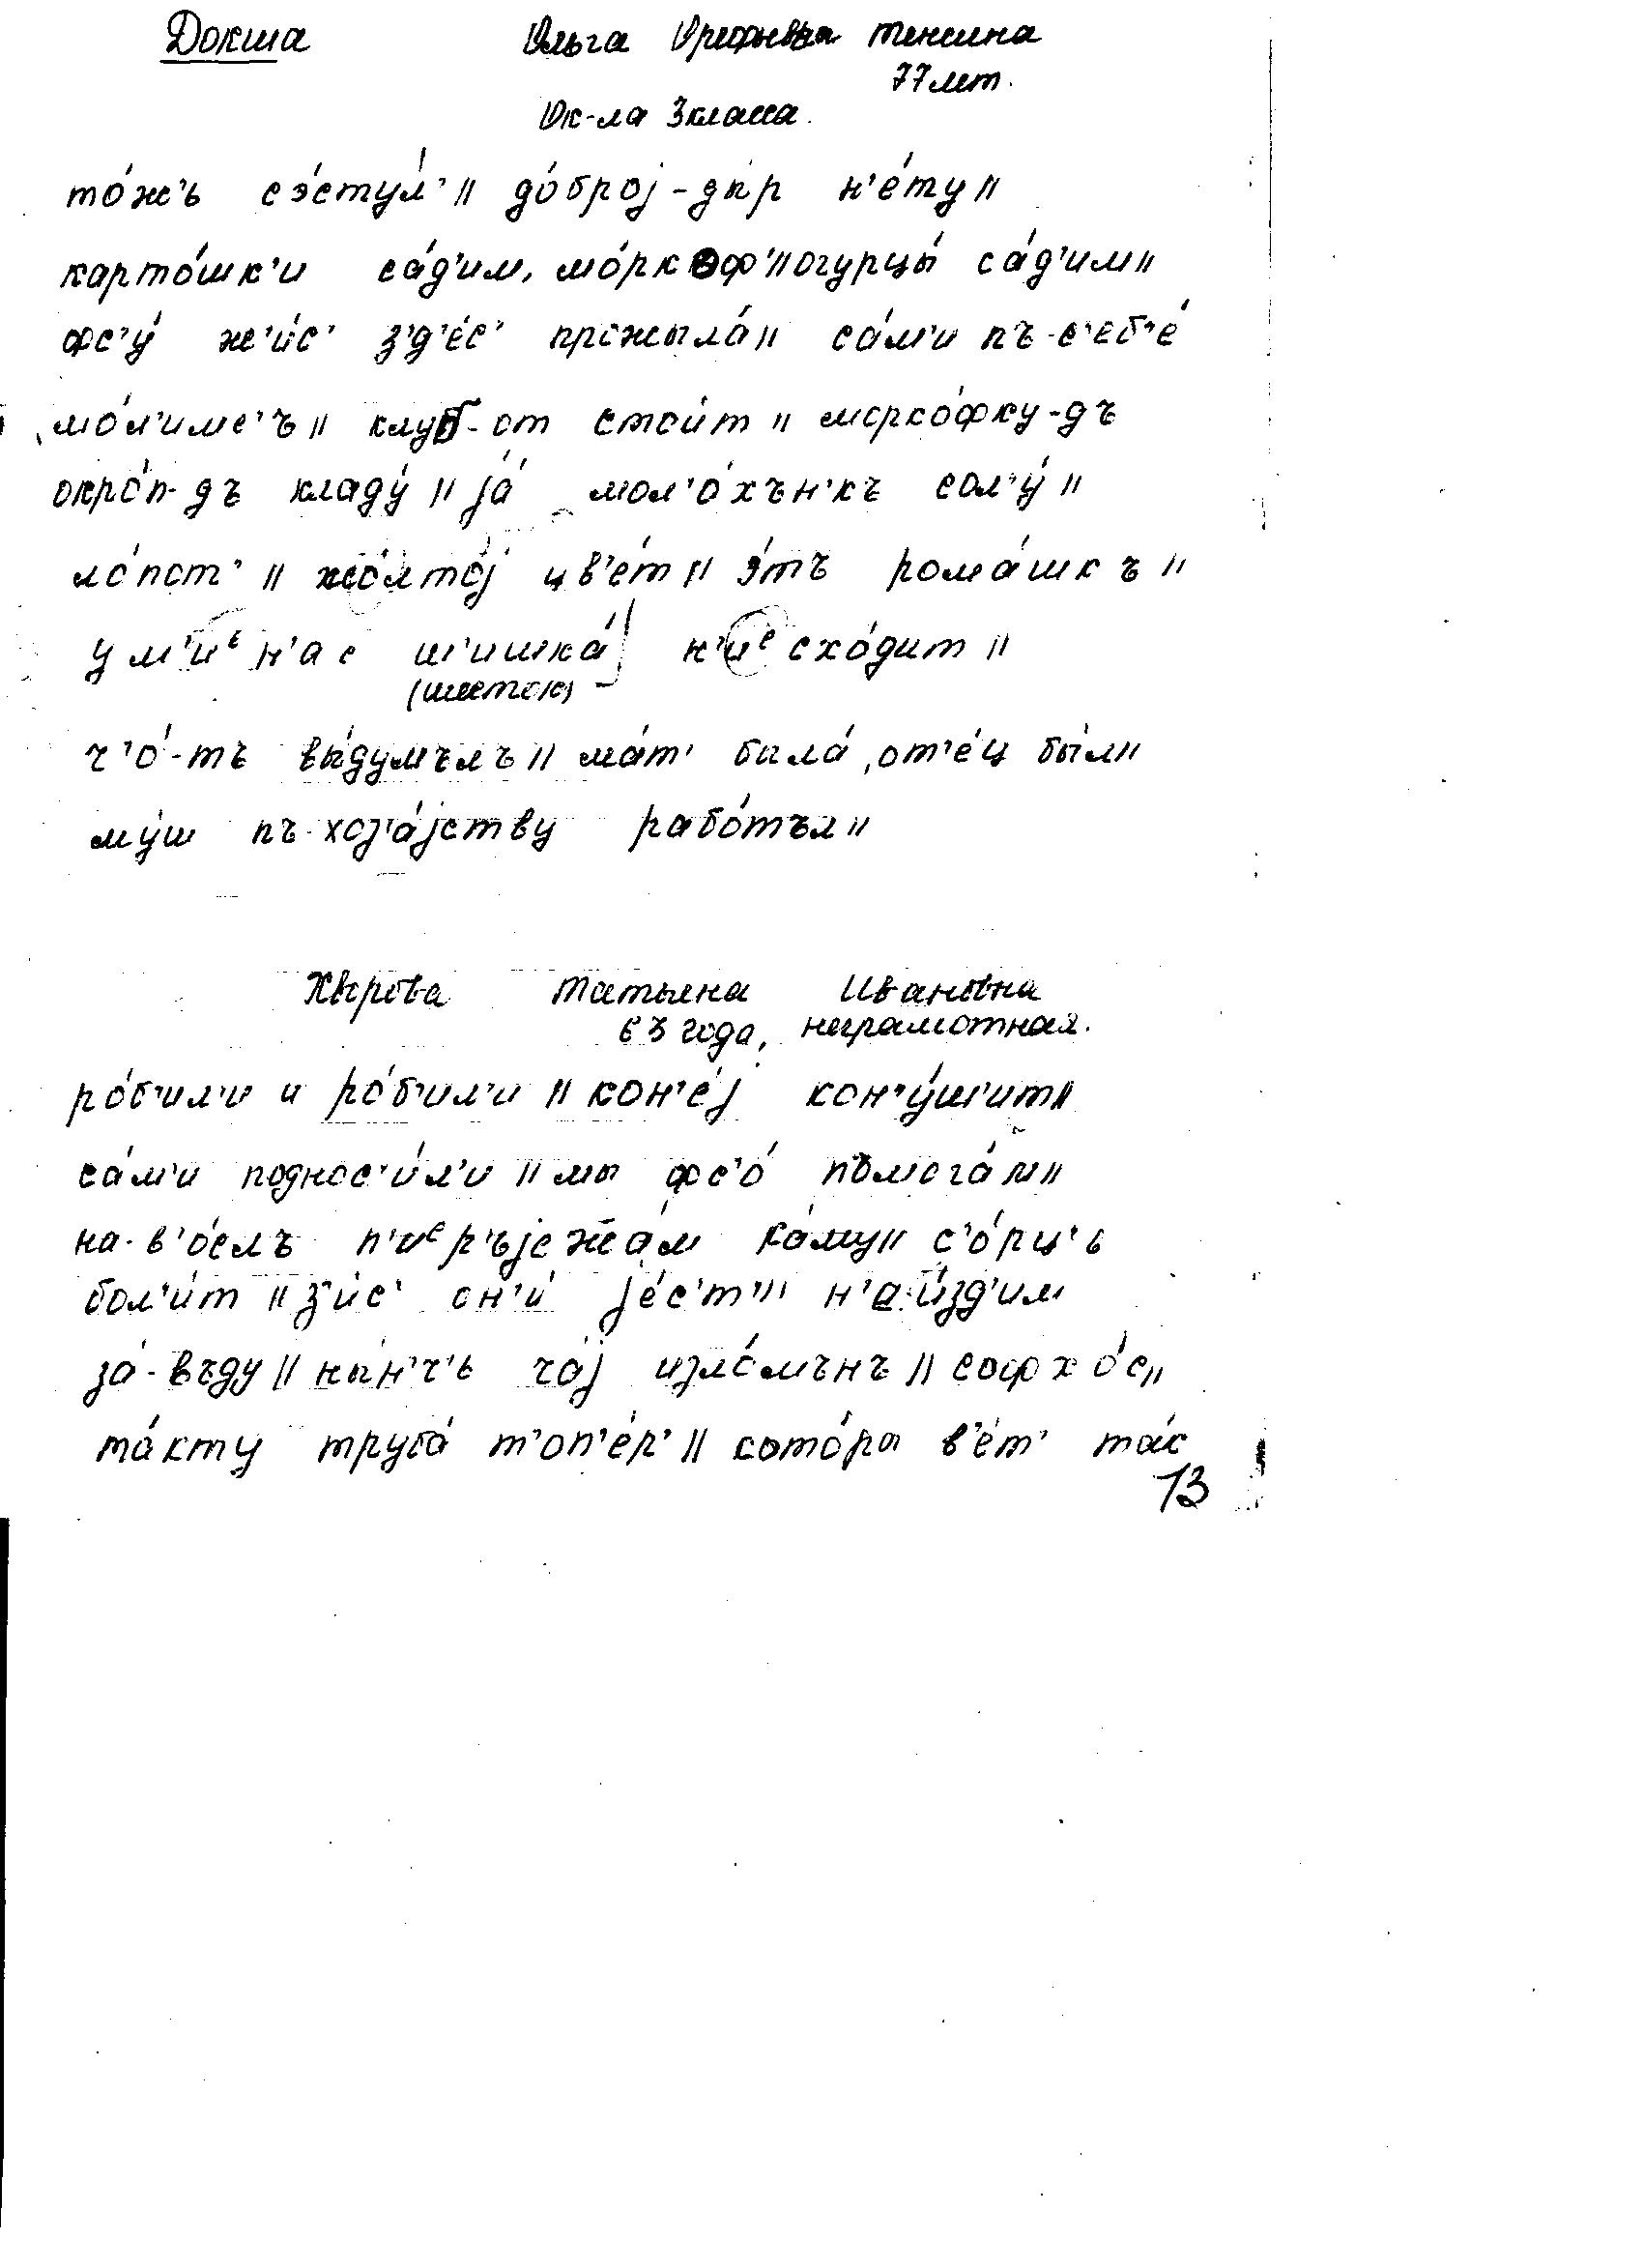 Докша Ольга Орефьевна Тенсина
77 лет.
Ок-ла 3 класса.
то́ж'ь сэ́сту́л'॥ до́број-ды́р н'е́ту॥
карто́шк'и са́д'им, мо́ркоф'॥огурцы́ са́д'им॥
фс'у́ ж'и́с' з'д'е́с' прожыла́॥ са́м'и пъ-с'еб'е́
мо́л'имс'ъ॥ клуб-от стои́т॥ морко́фку-дъ
окро́п-дъ кладу́॥ја́ мол'о́хън'къ сол'у́॥
ло́пот'॥ жо́лто́ј цв'е́т॥ э́тъ рома́шкъ॥
у м'иᵉн'а с ш'ишка́ н'иᵉ схо́дит॥
(шесток)
ч'о́-тъ вы́думълъ॥ ма́т' была́, от'е́ц бы́л॥
му́ш пъ-хоз'а́јству рабо́тъл॥
Хырова Татьяна Ивановна
63 года, неграмотная.
ро́б'ил'и и ро́б'ил'и॥ кон'е́ј кон'у́ш'ит॥
са́м'и поднос'и́л'и॥ мы фс'о́ пъмога́м॥
на-в'о́слъ п'иᵉр'ъјежа́м ка́му॥ с'о́рц'ь
бол'и́т॥з'и́с' он'и́ је́с'т'॥ н'а-и́зд'им
за́-въду॥ ны́н'ч'ь ча́ј изло́мънъ॥ софхо́с॥
та́кту труба́ т'оп'е́р'॥ кото́ры в'е́т' та́к
13